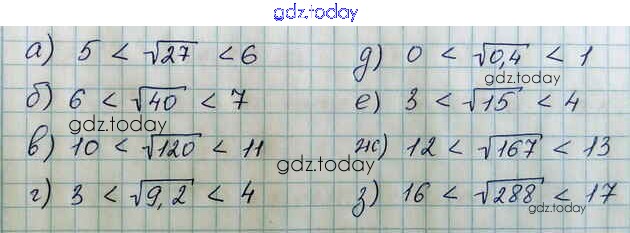 gdz.today
а) 5 < √27 < 6
д) 0 < √0,4 < 1
gdz.today
б) 6 < √40 < 7
е) 3 < √15 < 4
gdz.today
в) 10 < √120 < 11
ж) 12 < √167 < 13
gdz.today
г) 3 < √9,2 < 4
з) 16 < √288 < 17
gdz.today